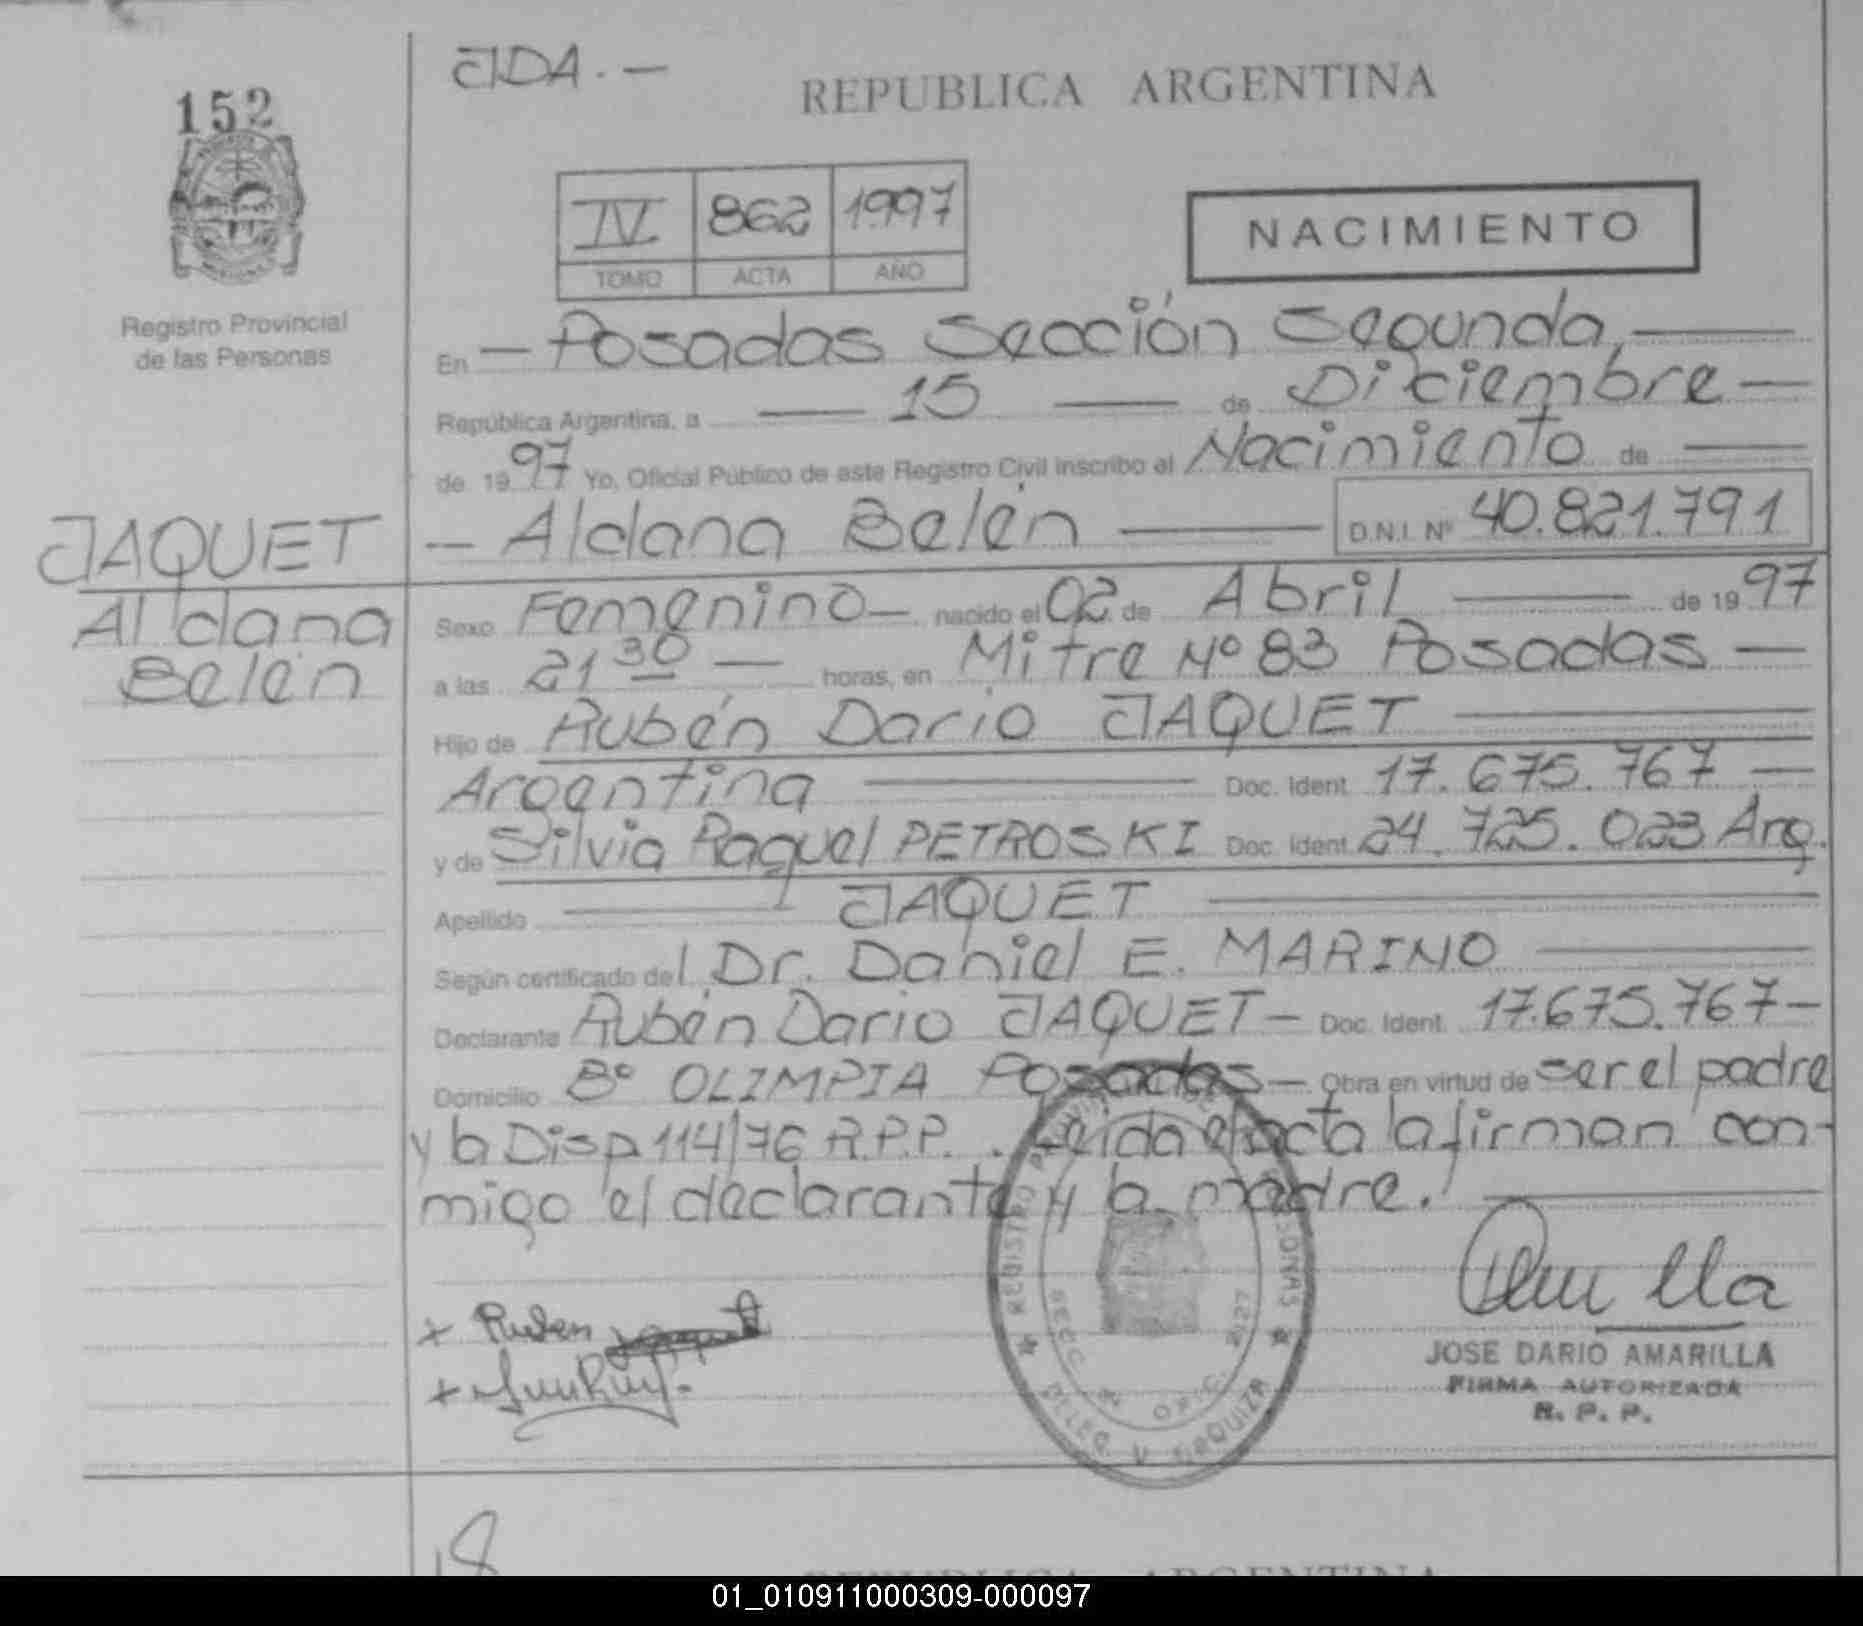 JDA. —
REPUBLICA ARGENTINA
152
IV 862 1997
TOMO ACTA AÑO
NACIMIENTO
Registro Provincial
de las Personas
En — Posadas Sección Segunda, —
República Argentina, a — 15 — de Diciembre —
de 1997 Yo, Oficial Público de este Registro Civil inscribo el Nacimiento de —
— Aldana Belén — D.N.I. Nº 40.821.791
JAQUET
Aldana
Belén
Sexo Femenino — nacido el 02 de Abril — de 1997
a las 21 30 — horas, en Mitre Nº 83 Posadas —
Hijo de Rubén Darío JAQUET —
Argentina — Doc. Ident. 17.675.767 —
y de Silvia Raquel PETROSKI Doc. Ident. 24.725.023 Arg.
Apellido — JAQUET —
Según certificado del Dr. Daniel E. MARINO —
Declarante Rubén Dario JAQUET — Doc. Ident. 17.675.767 —
Domicilio Bº OLIMPIA Posadas — Obra en virtud de ser el padre
y la Disp. 114/76 R.P.P.. Leida el acta la firman con-
migo el declarante y la madre. —
+ Ruben Jaquet
JOSE DARIO AMARILLA
FIRMA AUTORIZADA
R. P. P.
REPUBLICA ARGENTINA
01_010911000309-000097